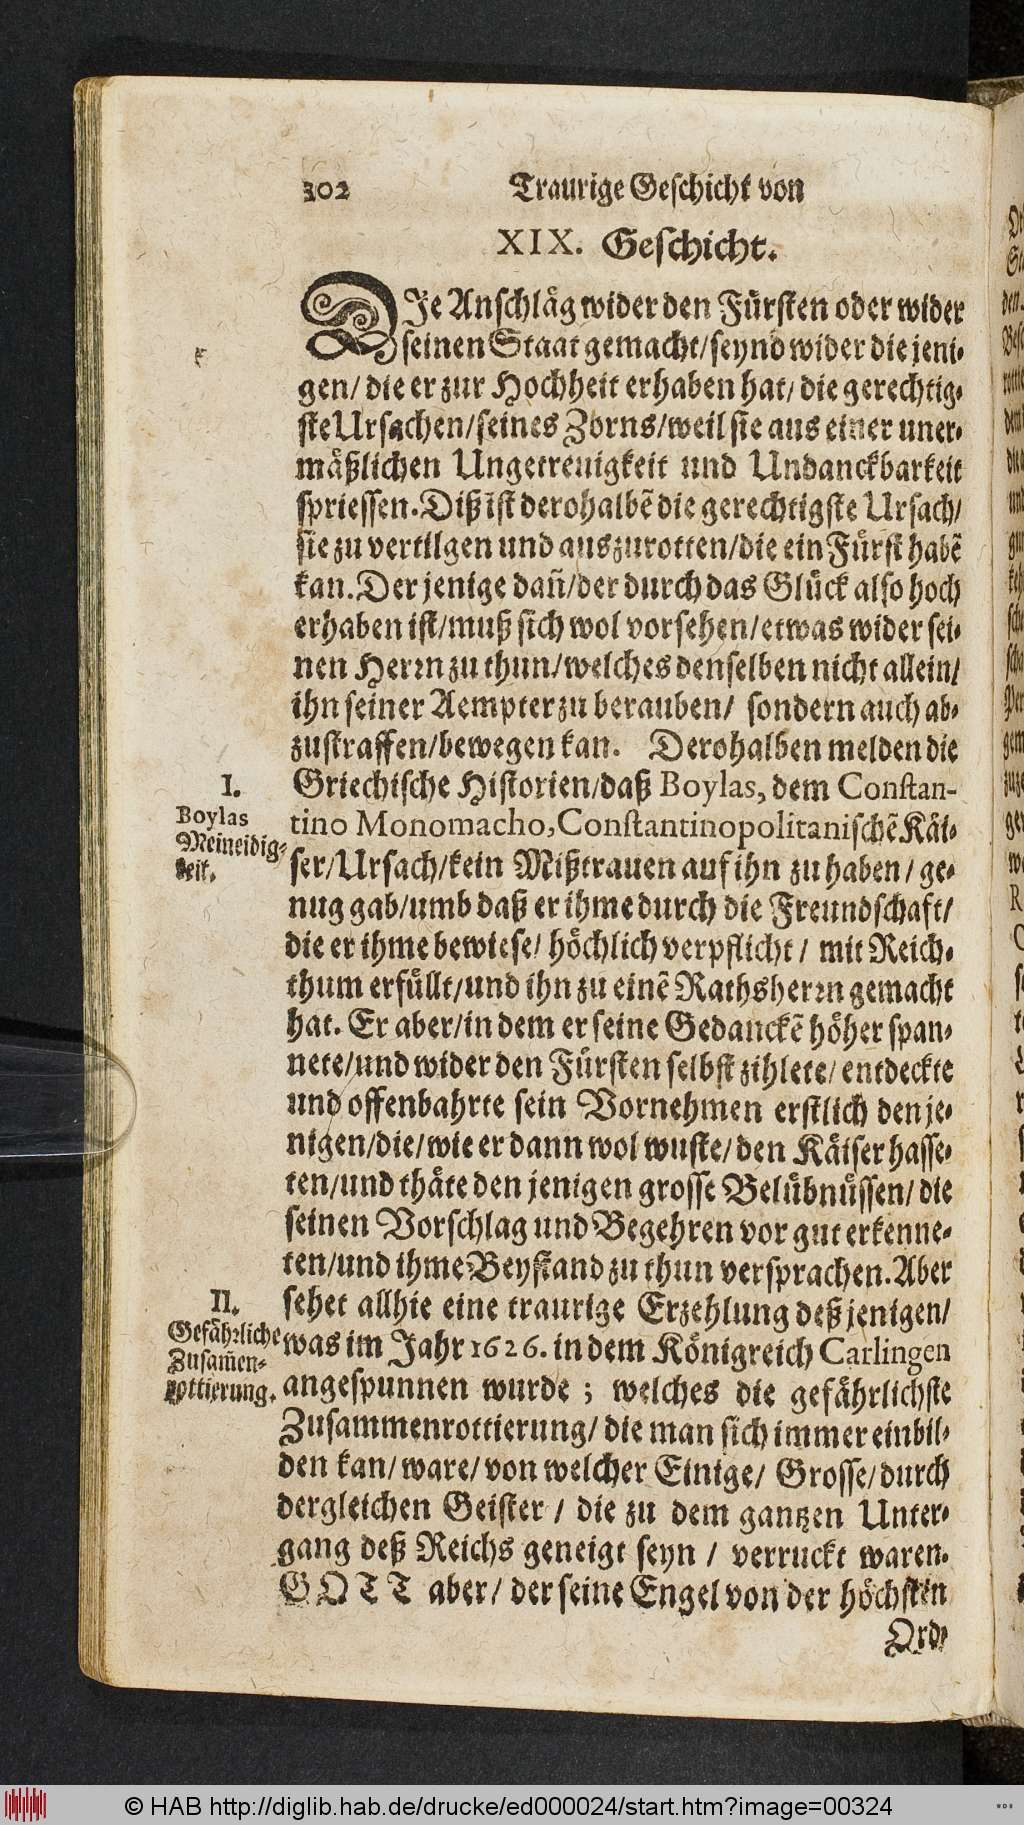 302 Traurige Geschicht von
XIX. Geschicht.
DIe Anschläg wider den Fürsten oder wider
seinen Staat gemacht/seynd wider die jeni-
gen/ die er zur Hochheit erhaben hat/ die gerechtig-
ste Ursachen/seines Zorns/weil sie aus einer uner-
mäßlichen Ungetreuigkeit und Undanckbarkeit
spriessen. Diß ist derohalbẽ die gerechtigste Ursach/
sie zu vertilgen und auszurotten/die ein Fürst habẽ
kan. Der jenige dañ/der durch das Glück also hoch
erhaben ist/muß sich wol vorsehen/etwas wider sei-
nen Herrn zu thun/welches denselben nicht allein/
ihn seiner Aempter zu berauben/ sondern auch ab-
zustraffen/bewegen kan. Derohalben melden die
I.
Boylas
Meineidig-
keit.
Griechische Historien/daß Boylas, dem Constan-
tino Monomacho, Constantinopolitanischẽ Käi-
ser/Ursach/kein Mißtrauen auf ihn zu haben/ ge-
nug gab/umb daß er ihme durch die Freundschaft/
die er ihme bewiese/ höchlich verpflicht/ mit Reich-
thum erfüllt/und ihn zu einẽ Rathsherrn gemacht
hat. Er aber/in dem er seine Gedanckẽ höher span-
nete/und wider den Fürsten selbst zihlete/ entdeckte
und offenbahrte sein Vornehmen erstlich den je-
nigen/die/wie er dann wol wuste/den Käiser hasse-
ten/und thäte den jenigen grosse Belübnüssen/ die
seinen Vorschlag und Begehren vor gut erkenne-
ten/und ihme Beystand zu thun versprachen. Aber
II.
Gefährliche
Zusam̃en-
rottierung.
sehet allhie eine traurige Erzehlung deß jenigen/
was im Jahr 1626. in dem Königreich Carlingen
angespunnen wurde; welches die gefährlichste
Zusammenrottierung/ die man sich immer einbil-
den kan/ ware/ von welcher Einige/ Grosse/durch
dergleichen Geister/ die zu dem gantzen Unter-
gang deß Reichs geneigt seyn/ verruckt waren.
GOTT aber/ der seine Engel von der höchsten
Ord-
© HAB http://diglib.hab.de/drucke/ed000024/start.htm?image=00324